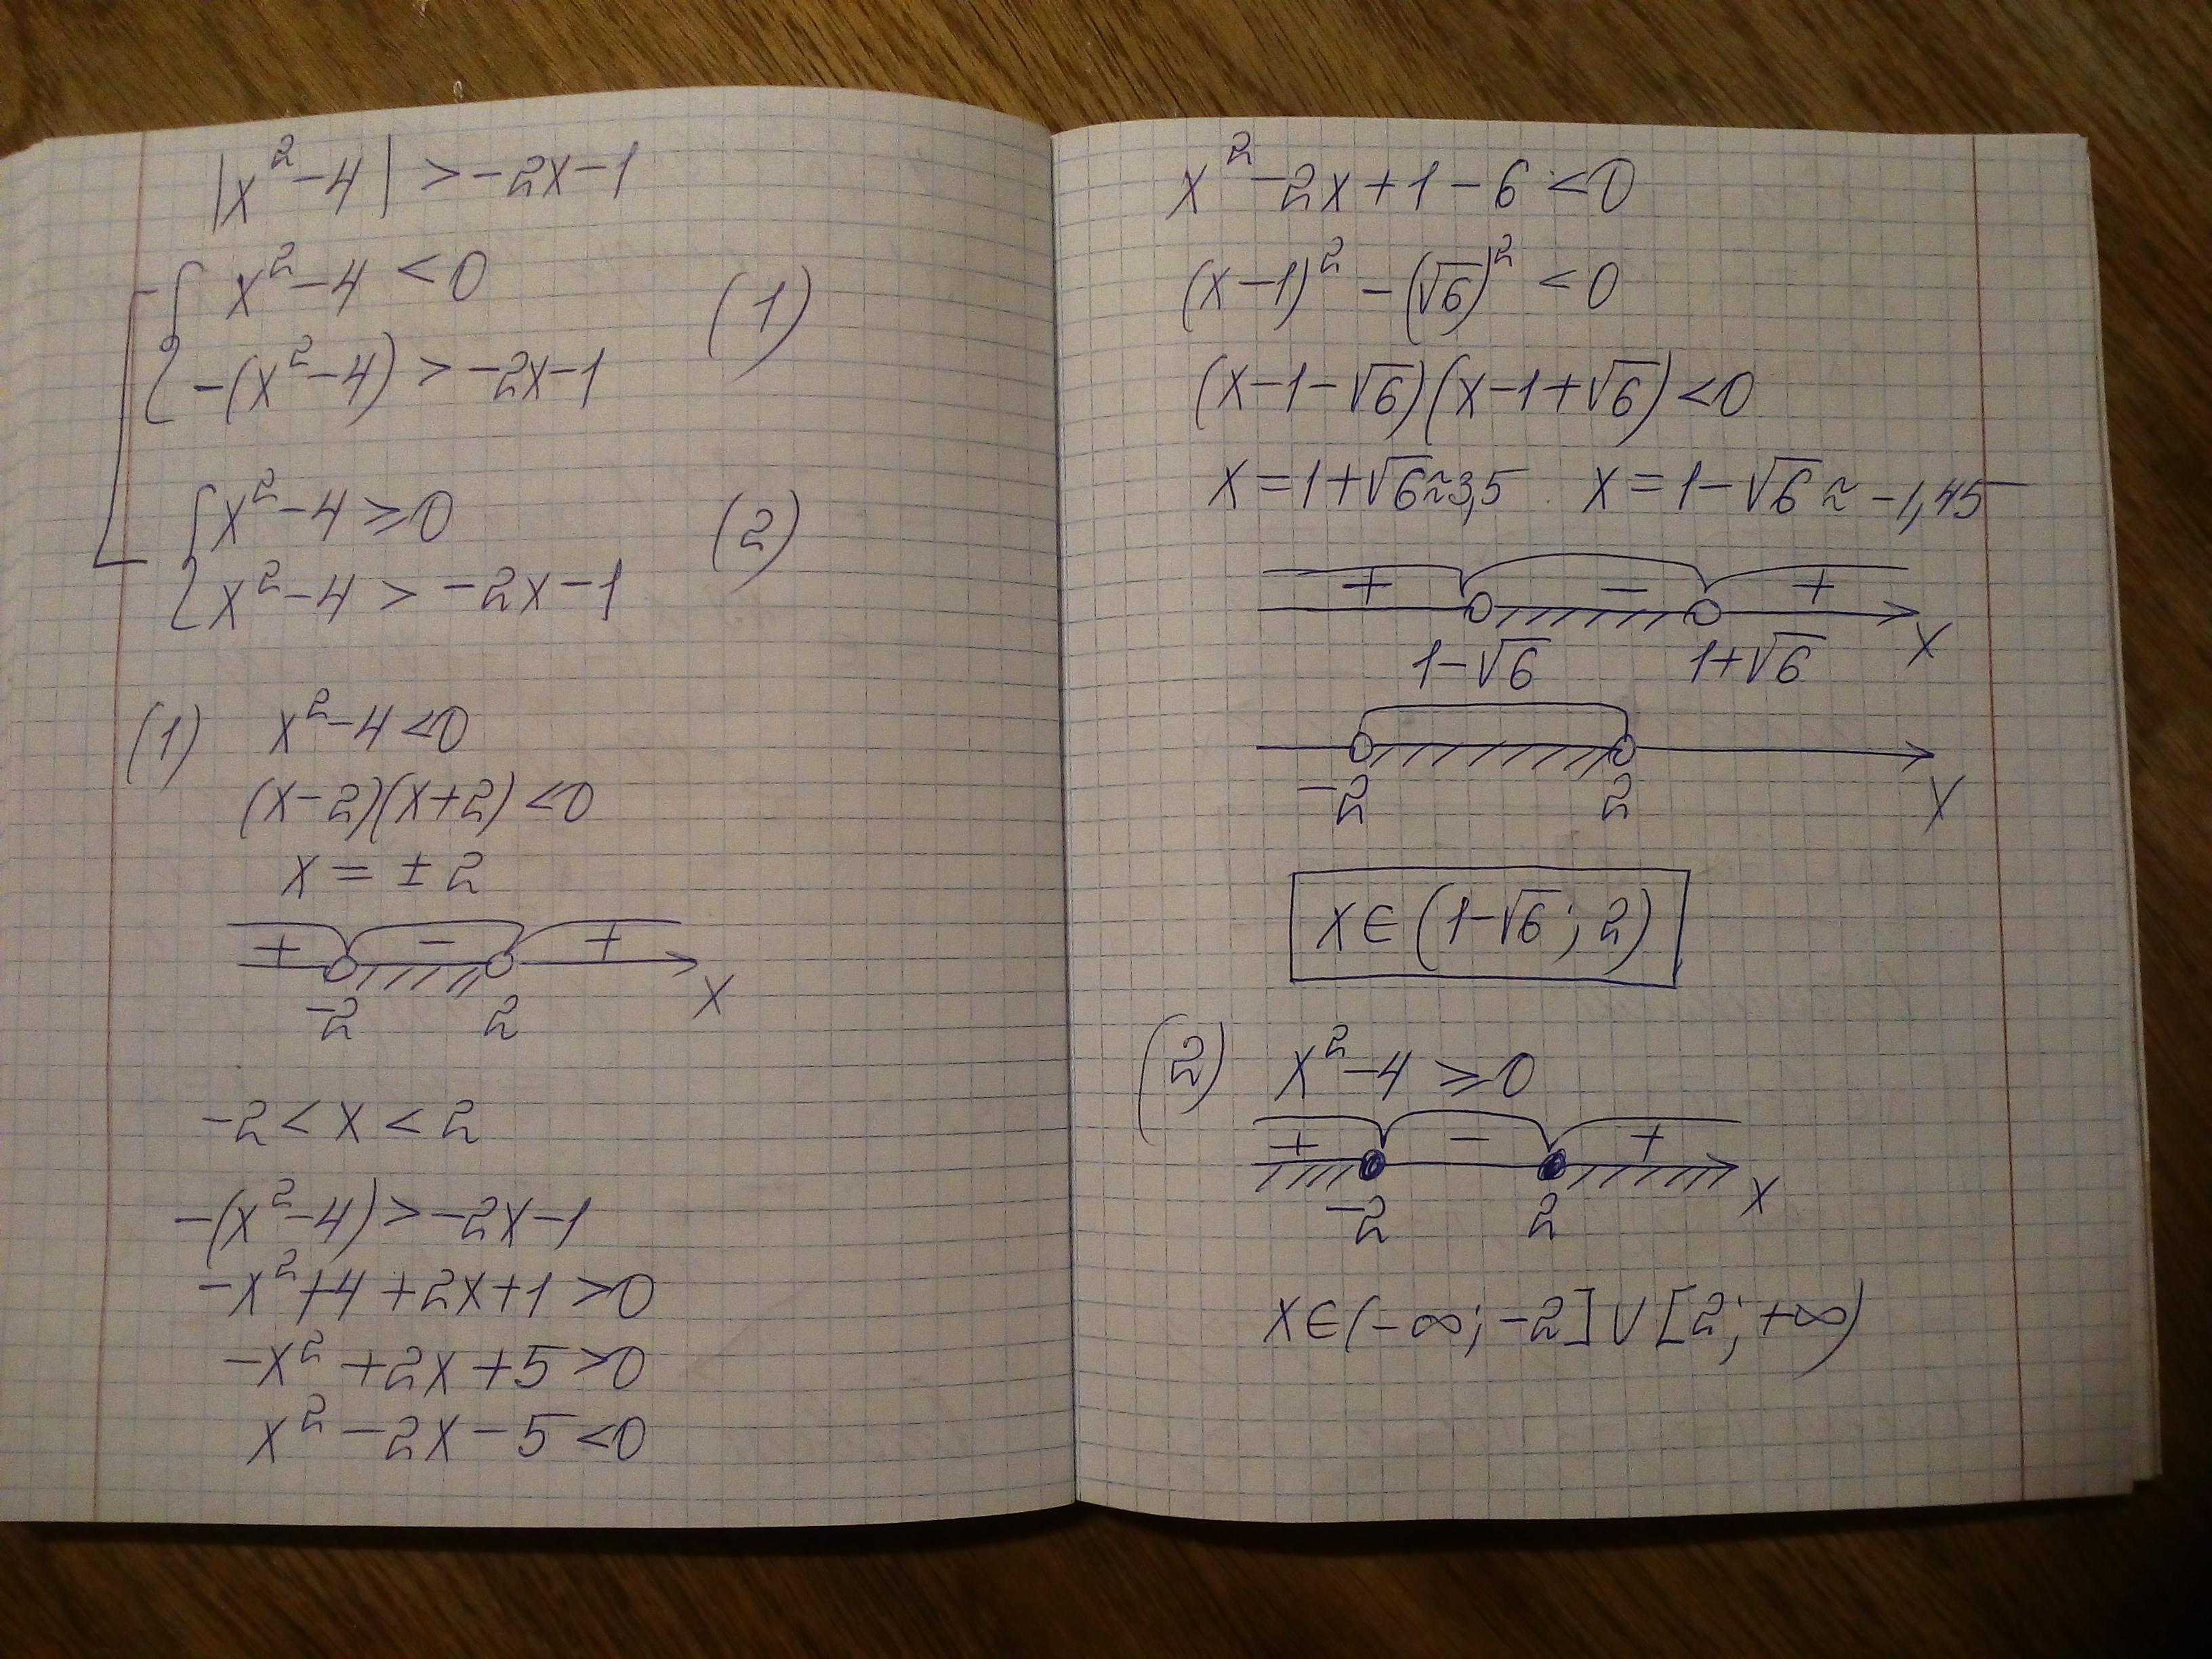 |x²-4| > -2x-1
x²-4 < 0
(1)
-(x²-4) > -2x-1
x²-4 ≥ 0
(2)
x²-4 > -2x-1
(1) x²-4 < 0
(x-2)(x+2) < 0
x = ±2
+ - +
-2 2 x
-2 < x < 2
-(x²-4) > -2x-1
-x²+4+2x+1 > 0
-x²+2x+5 > 0
x²-2x-5 < 0
x²-2x+1-6 < 0
(x-1)²-(√6)² < 0
(x-1-√6)(x-1+√6) < 0
x = 1+√6 ≈ 3,5 x = 1-√6 ≈ -1,45
+ - +
1-√6 1+√6 x
-2 2 x
x ∈ (1-√6; 2)
(2) x²-4 ≥ 0
+ - +
-2 2 x
x ∈ (-∞; -2] ∪ [2; +∞)